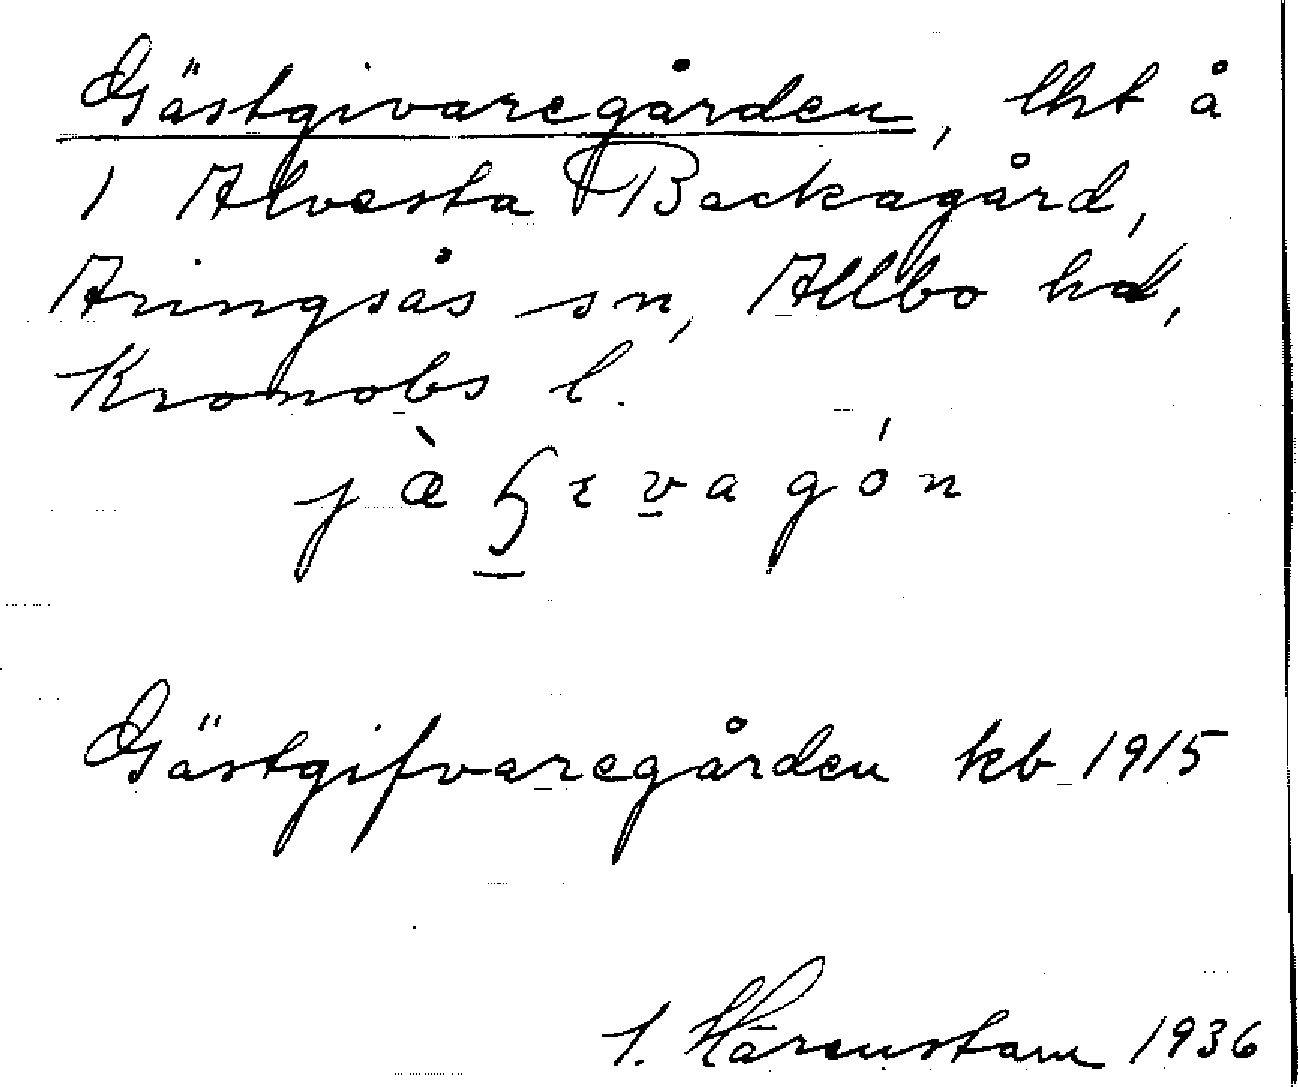 Gästgivaregården, lht å
1 Alvesta Backagård,
Aringsås sn, Allbo hd,
Kronobs l.
Gästgifvaregården kb 1915
Härenstam 1936